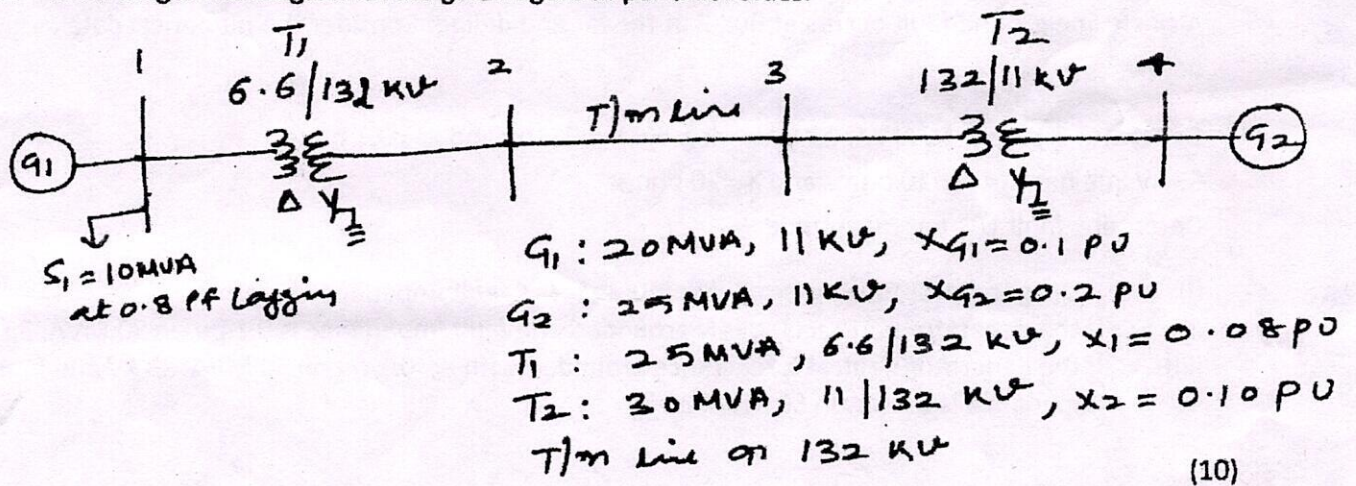 T1
T2
1
6.6/132 KV
2
T/m line
3
132/11 KV
4
G1
G2
Δ Y
Δ Y
S1 = 10MVA
at 0.8 Pf Lagging
G1 : 20MVA, 11KV, XG1=0.1 PU
G2 : 25 MVA, 11KV, XG2=0.2 PU
T1 : 25MVA, 6.6/132 KV, X1=0.08PU
T2: 30MVA, 11/132 KV, X2=0.10 PU
T/m line on 132 KV
(10)